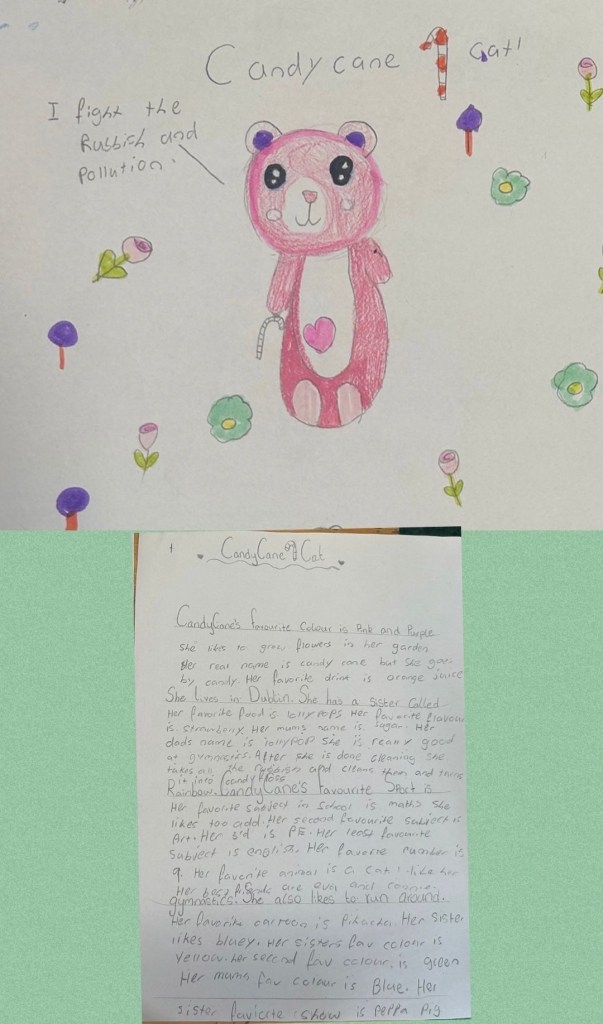 Candy cane Cat!
I fight the
Rubbish and
pollution.
CandyCane Cat
CandyCane's favourite Colour is Pink and Purple
She likes to grow flowers in her garden
Her real name is candy cane but she goes
by candy. Her favorite drink is orange juice
She lives in Dublin. She has a sister called
Her favorite food is lollypops Her favourite flavour
is strawberry. Her mums name is sugar. Her
dads name is lollypop She is really good
at gymnastics. After she is done cleaning she
takes all the rubbish and cleans them and turns
it into candy floss
Rainbow. CandyCane's favourite Sport is
Her favorite subject in school is maths she
likes too add. Her second favourite subject is
Art. Her 3'd is PE. Her least favourite
subject is english. Her favorite number is
9. Her favorite animal is a cat! like her
Her best friends are and
gymnastics. She also likes to run around.
Her favorite cartoon is Pikachu. Her sister
likes bluey. Her sisters fav colour is
Yellow. Her second fav colour. is green
Her mums fav colour is Blue. Her
sister favicrte show is peppa pig